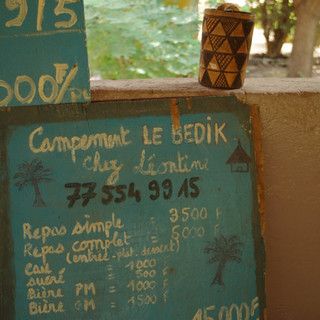 9/5
000F/
Campement LE BEDIK
chez Léontine
77 554 99 15
Repas simple = 3500 F
Repas complet = 5000 F
(entrée-plat-dessert)
Café = 1000
sucré = 500 F
Bière PM = 1000 F
Bière GM = 1500 F
15.000F